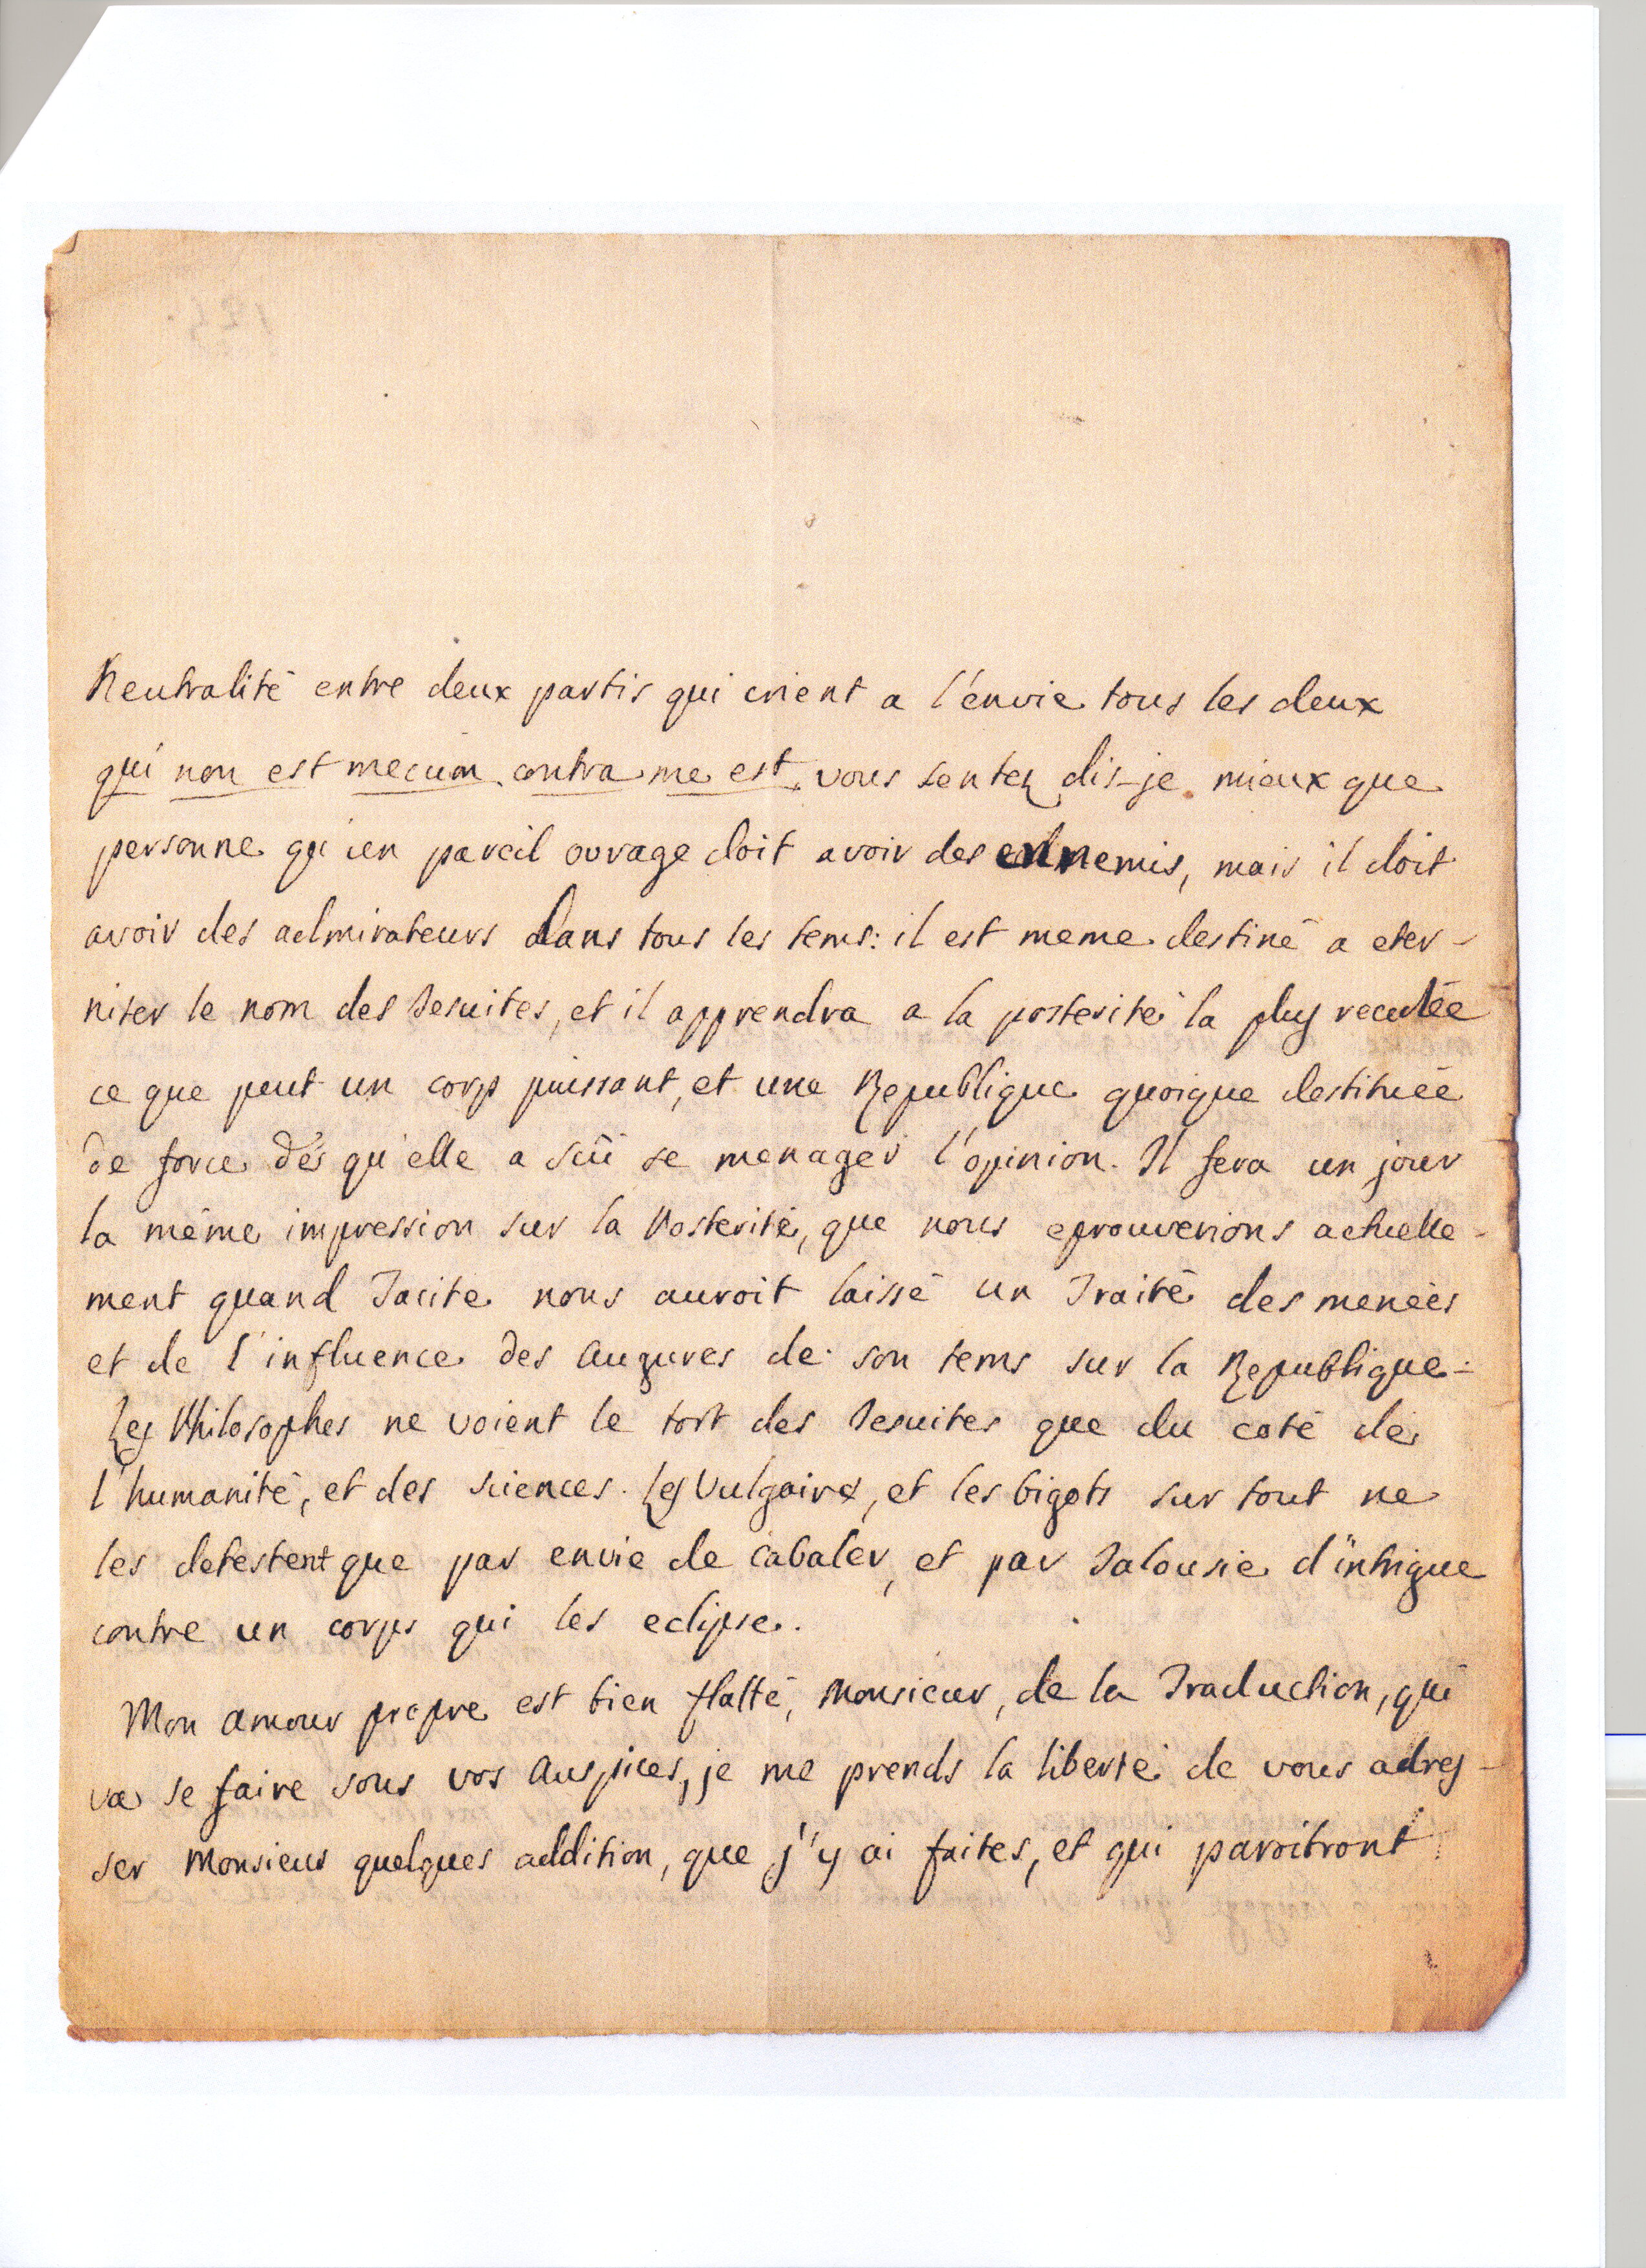 Neutralité entre deux partis qui crient a l'envie tous les deux
qui non est mecum contra me est, vous sentez dis-je mieux que
personne qu'un pareil ouvrage doit avoir des ennemis, mais il doit
avoir des admirateurs dans tous les tems: il est meme destiné a eter-
niser le nom des Jesuites, et il apprendra a la posterité la plus reculée
ce que peut un corp puissant, et une Republique quoique destituée
de force dés qu'elle a sçû se menager l'opinion. Il fera un jour
la même impression sur la Posterité, que nous eprouverions actuelle-
ment quand Tacite nous auroit laissé un Traité des menées
et de l'influence des Augures de son tems sur la Republique.
Les Philosophes ne voient le tort des Jesuites que du coté de
l'humanité, et des sciences. Les Vulgaires, et les bigots sur tout ne
les detestent que par envie de cabaler, et par Jalousie d'intrigue
contre un corps qui les eclipse.
Mon amour propre est bien flatté, Monsieur, de la Traduction, qui
va se faire sous vos Auspices, je me prends la liberté de vous adres-
ser Monsieur quelques addition, que j'y ai faites, et qui paroitront